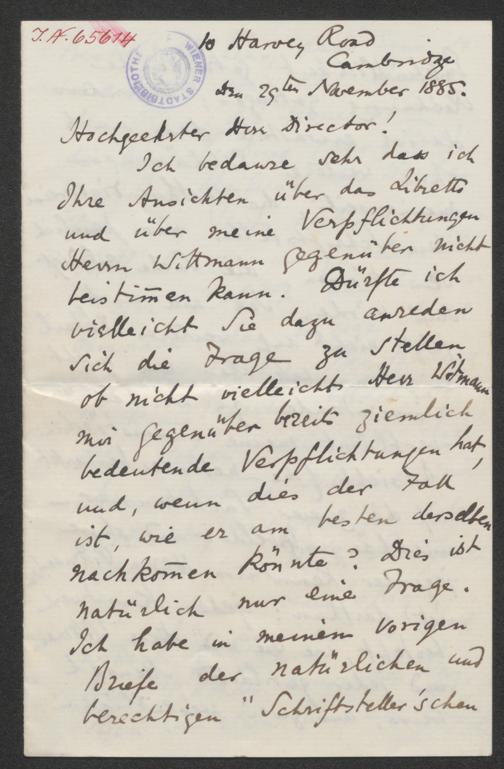 J.N. 65614
WIENER STADTBIBLIOTHEK
10 Harvey Road
Cambridge
den 29ten November 1885.
Hochgeehrter Herr Director!
Ich bedaure sehr dass ich
Ihre Ansichten über das Libretto
und über meine Verpflichtungen
Herrn Wittmann gegenüber nicht
beistim̄en kann. Dürfte ich
vielleicht Sie dazu anreden
sich die Frage zu stellen
ob nicht vielleicht Herr Wittmann
mir gegenüber bereits ziemlich
bedeutende Verpflichtungen hat,
und, wenn dies der Fall
ist, wie er am besten derselben
nachkom̄en könnte? Dies ist
natürlich nur eine Frage.
Ich habe in meinem vorigen
Briefe der natürlichen und
berechtigen "Schriftsteller'schen